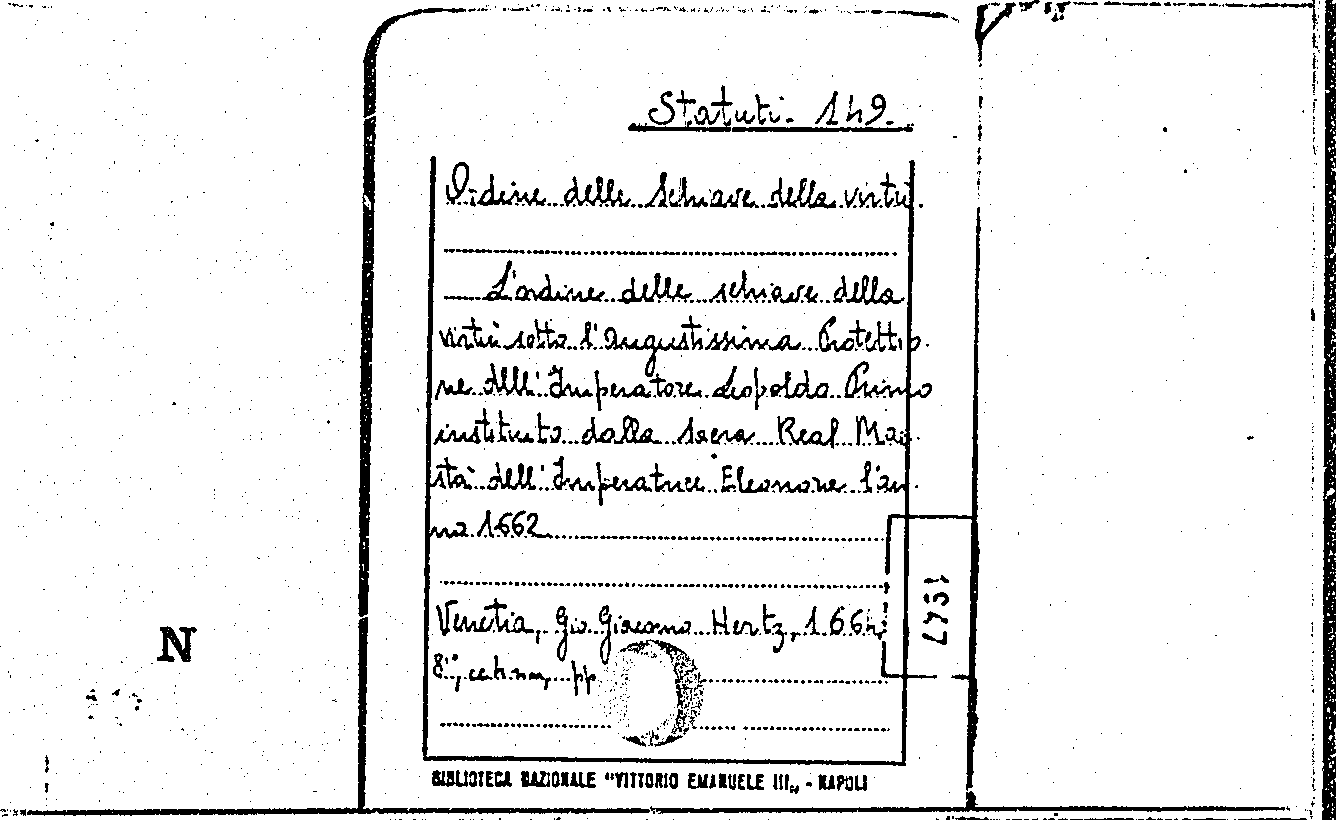 Statuti. 149.
Ordine delle Schiave della virtù.
L'ordine delle schiave della
virtù sotto l'Augustissima Protettio-
ne dell'Imperatore Leopoldo Primo
instituito dalla Sacra Real Mae-
stà dell'Imperatrice Eleonora l'an-
no 1662
1947
Venetia, Gio Giacomo Hertz, 1664,
8º, pp
N
BIBLIOTECA NAZIONALE "VITTORIO EMANUELE III„ - NAPOLI